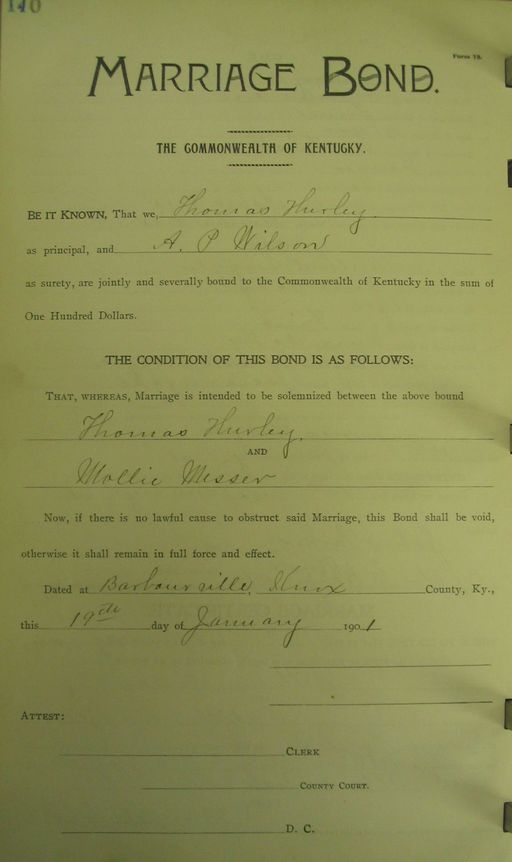 140
Form 18.
MARRIAGE BOND.
THE COMMONWEALTH OF KENTUCKY.
BE IT KNOWN, That we, Thomas Hurley
as principal, and A. P Wilson
as surety, are jointly and severally bound to the Commonwealth of Kentucky in the sum of
One Hundred Dollars.
THE CONDITION OF THIS BOND IS AS FOLLOWS:
THAT, WHEREAS, Marriage is intended to be solemnized between the above bound
Thomas Hurley,
AND
Mollie Messer
Now, if there is no lawful cause to obstruct said Marriage, this Bond shall be void,
otherwise it shall remain in full force and effect.
Dated at Barbourville, Knox County, Ky.,
this 19th day of January 1901
ATTEST:
CLERK
COUNTY COURT.
D. C.